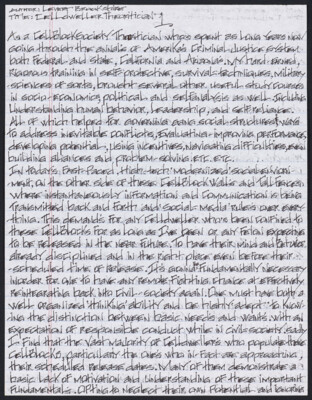 Author: Levert Brookshire
Title: "CellDweller Theoreticion"
As a CellBlock Society Theoreticion who's spent 23 long years now
going through the annals of America's Criminal Justice System
both Federal and State, California and Arizona's. My hard earned,
Rigorous training in self-protective, survival techniques, Military
sciences of sorts, brought several other useful study courses
in socio-economic, political and self-analysis as well. Including
Understanding human behavior, leadership, and self-reliance.
All of which helped for governing ones social structured ways
to address inevitable conflicts, Evaluating-improving performance,
developing potential, using incentives, navigating difficulties, even
building alliances and problem solving etc. etc.
In today's Fast-Paced, High-tech 'Modernized' social environ-
ment, on the other side of these CellBlock Walls and Tall Fences.
Where instantaneously information and Communication is being
Transmitted back and forth and Social-Media rules over every-
thing. This demands for any Celldweller who's been confined to
these CellBlocks for as long as I've been or any Felon expecting
to be released in the near future. To have their mind and Behavior
already disciplined and in the right place even before their
-scheduled time of Release. It's going Fundamentally necessary
in order for one to have any remote Fighting chance at effectively
reintegrating back into Civil-society again. One must have both a
well-organized thinking ability and be highly adept to Know-
ing the distinction between basic needs and wants. With an
expectation of responsible conduct while in civil-society. Sadly
I find that the vast majority of Celldwellers who populate these
CellBlocks, particularly the ones who in fact are approaching,
their scheduled release dates. Many of them demonstrate a
basic lack of motivation and understanding of these important
Fundamentals. Opting to neglect their own Potential and ignoring